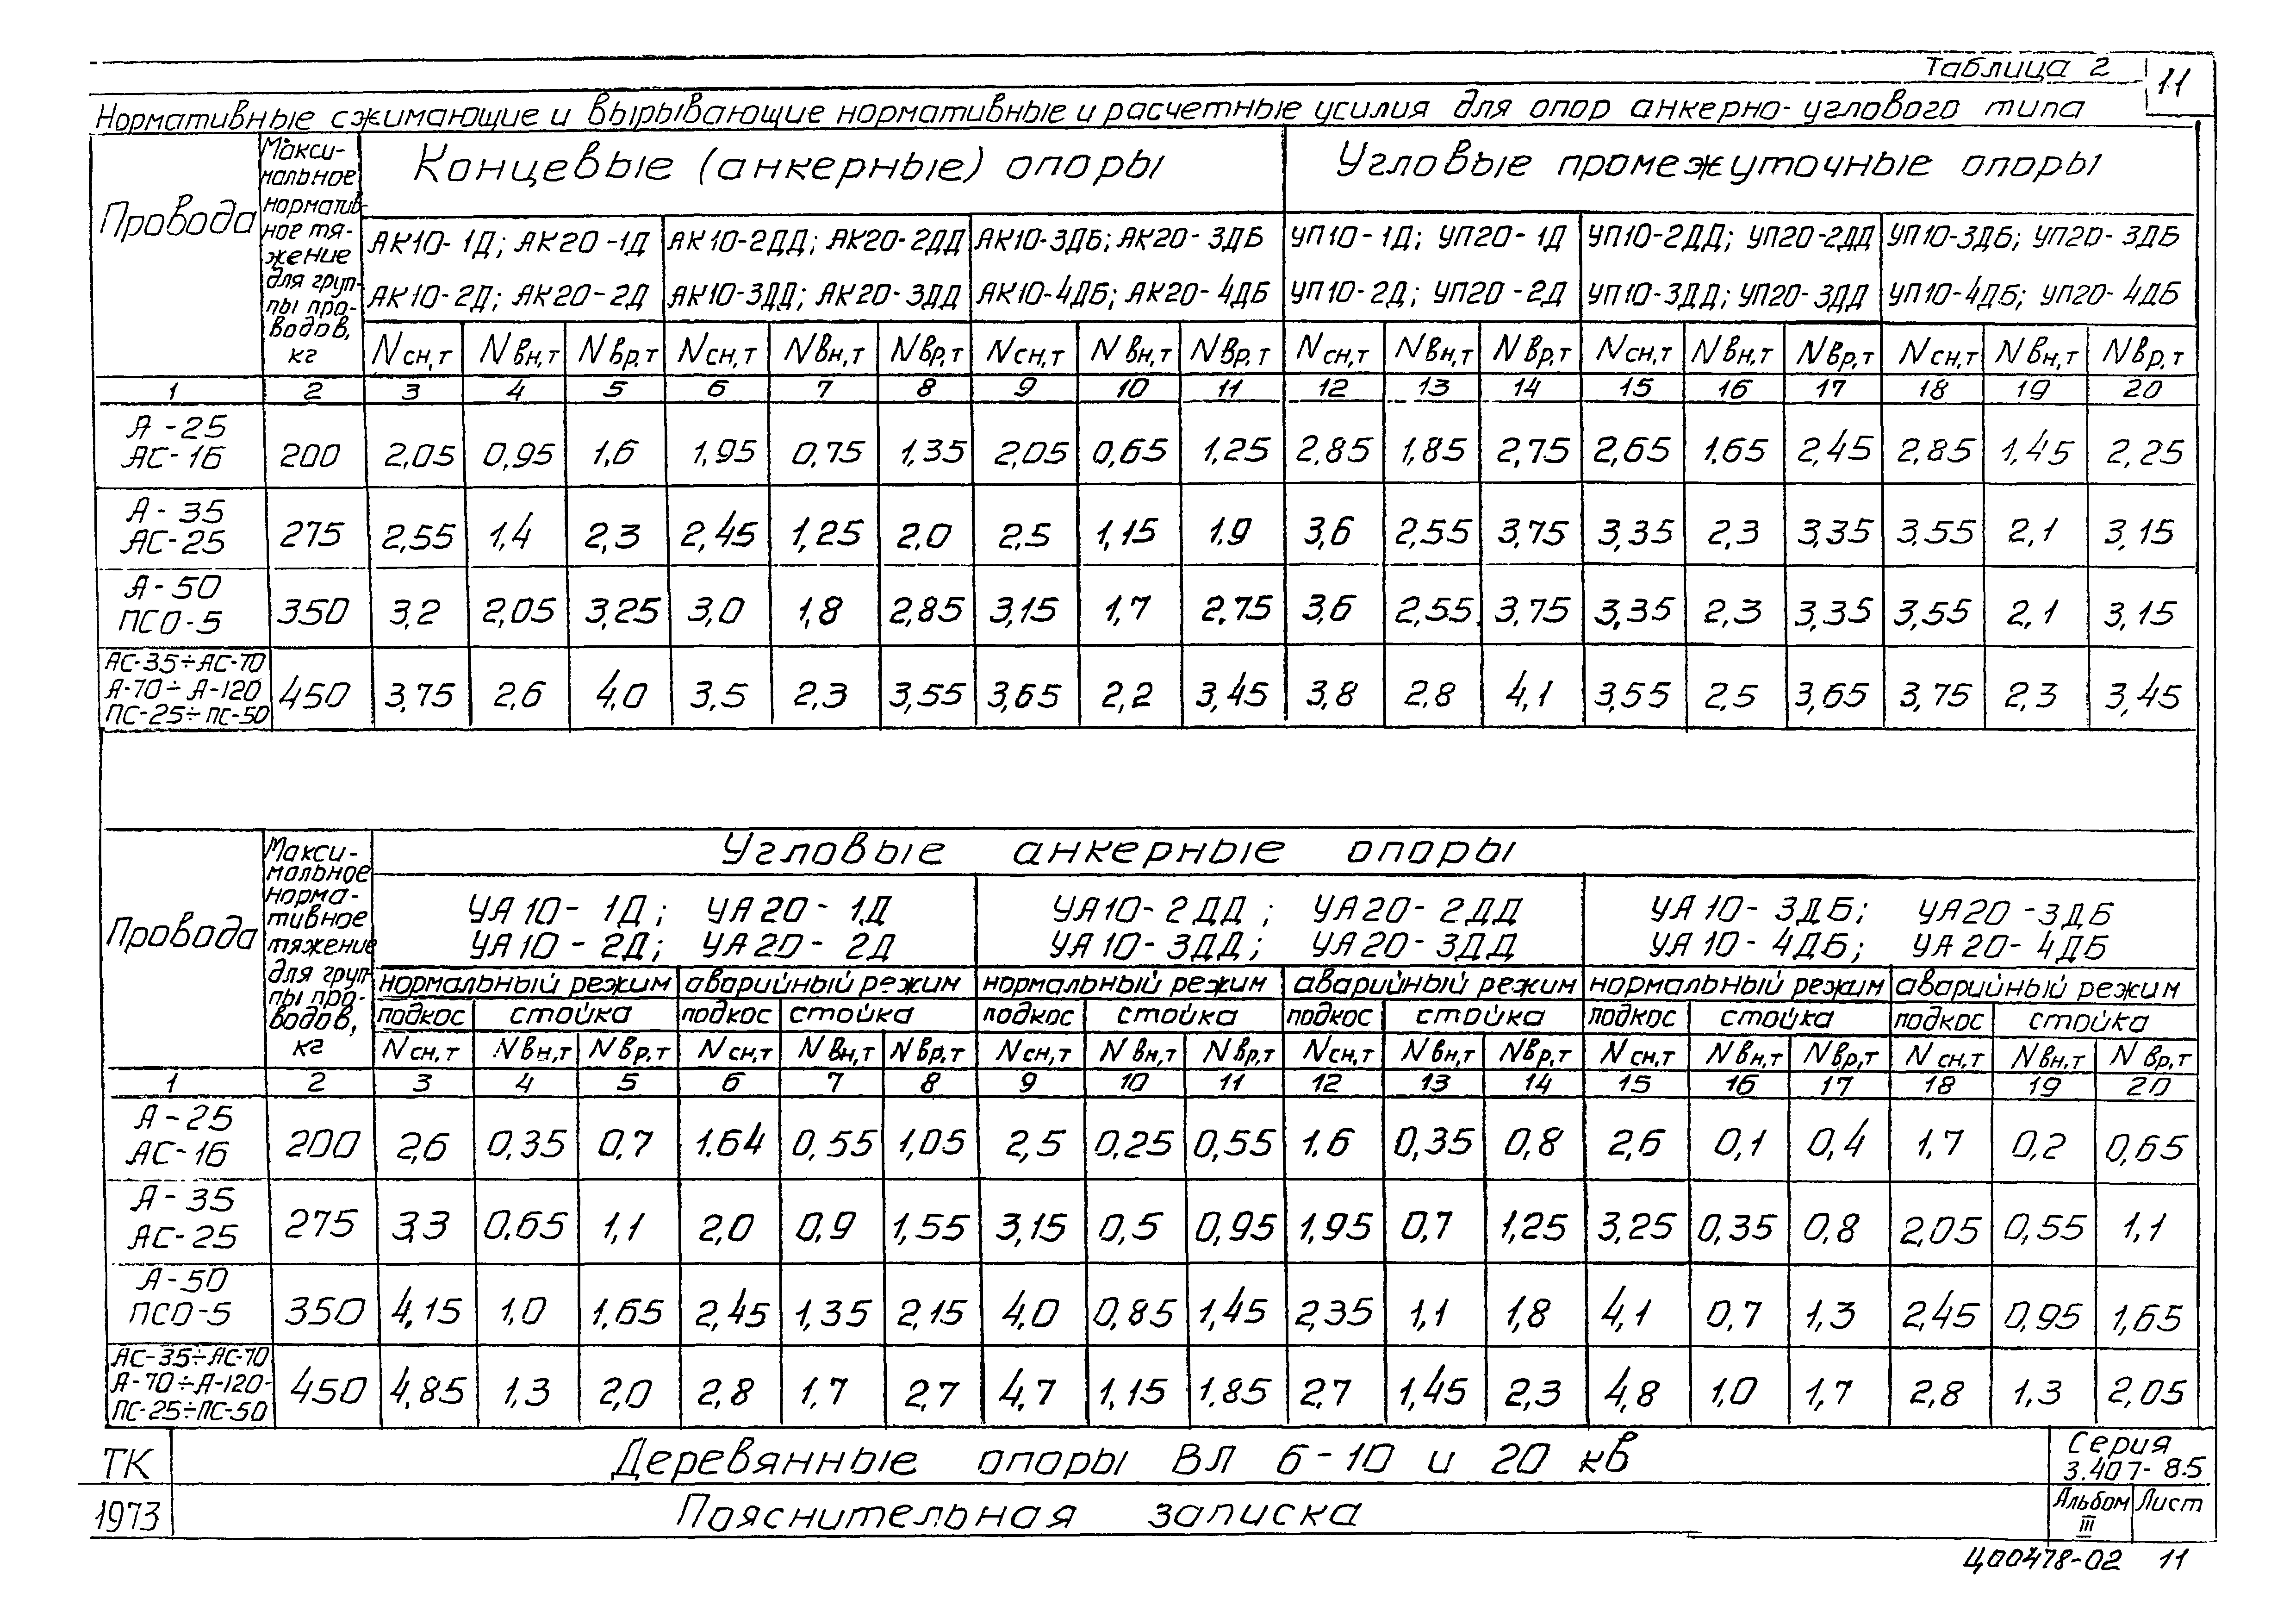 Таблица 2
11
Нормативные сжимающие и вырывающие нормативные и расчетные усилия для опор анкерно-углового типа
Провода
Макси-
мальное
норматив-
ное тя-
жение
для груп-
пы про-
водов,
кг
Концевые (анкерные) опоры
Угловые промежуточные опоры
АК10-1Д; АК20-1Д
АК10-2Д; АК20-2Д
АК10-2ДД; АК20-2ДД
АК10-3ДД; АК20-3ДД
АК10-3ДБ; АК20-3ДБ
АК10-4ДБ; АК20-4ДБ
УП10-1Д; УП20-1Д
УП10-2Д; УП20-2Д
УП10-2ДД; УП20-2ДД
УП10-3ДД; УП20-3ДД
УП10-3ДБ; УП20-3ДБ
УП10-4ДБ; УП20-4ДБ
Nсн,т Nвн,т Nвр,т Nсн,т Nвн,т Nвр,т Nсн,т Nвн,т Nвр,т Nсн,т Nвн,т Nвр,т Nсн,т Nвн,т Nвр,т Nсн,т Nвн,т Nвр,т
1 2 3 4 5 6 7 8 9 10 11 12 13 14 15 16 17 18 19 20
А-25
АС-16
200 2,05 0,95 1,6 1,95 0,75 1,35 2,05 0,65 1,25 2,85 1,85 2,75 2,65 1,65 2,45 2,85 1,45 2,25
А-35
АС-25
275 2,55 1,4 2,3 2,45 1,25 2,0 2,5 1,15 1,9 3,6 2,55 3,75 3,35 2,3 3,35 3,55 2,1 3,15
А-50
ПСО-5
350 3,2 2,05 3,25 3,0 1,8 2,85 3,15 1,7 2,75 3,6 2,55 3,75 3,35 2,3 3,35 3,55 2,1 3,15
АС-35÷АС-70
А-70÷А-120
ПС-25÷ПС-50
450 3,75 2,6 4,0 3,5 2,3 3,55 3,65 2,2 3,45 3,8 2,8 4,1 3,55 2,5 3,65 3,75 2,3 3,45
Провода
Макси-
мальное
норма-
тивное
тяжение
для груп-
пы про-
водов,
кг
Угловые анкерные опоры
УА10-1Д; УА20-1Д
УА10-2Д; УА20-2Д
УА10-2ДД; УА20-2ДД
УА10-3ДД; УА20-3ДД
УА10-3ДБ; УА20-3ДБ
УА10-4ДБ; УА20-4ДБ
нормальный режим аварийный режим нормальный режим аварийный режим нормальный режим аварийный режим
подкос стойка подкос стойка подкос стойка подкос стойка подкос стойка подкос стойка
Nсн,т Nвн,т Nвр,т Nсн,т Nвн,т Nвр,т Nсн,т Nвн,т Nвр,т Nсн,т Nвн,т Nвр,т Nсн,т Nвн,т Nвр,т Nсн,т Nвн,т Nвр,т
1 2 3 4 5 6 7 8 9 10 11 12 13 14 15 16 17 18 19 20
А-25
АС-16
200 2,6 0,35 0,7 1,64 0,55 1,05 2,5 0,25 0,55 1,6 0,35 0,8 2,6 0,1 0,4 1,7 0,2 0,65
А-35
АС-25
275 3,3 0,65 1,1 2,0 0,9 1,55 3,15 0,5 0,95 1,95 0,7 1,25 3,25 0,35 0,8 2,05 0,55 1,1
А-50
ПСО-5
350 4,15 1,0 1,65 2,45 1,35 2,15 4,0 0,85 1,45 2,35 1,1 1,8 4,1 0,7 1,3 2,45 0,95 1,65
АС-35÷АС-70
А-70÷А-120
ПС-25÷ПС-50
450 4,85 1,3 2,0 2,8 1,7 2,7 4,7 1,15 1,85 2,7 1,45 2,3 4,8 1,0 1,7 2,8 1,3 2,05
ТК
1973
Деревянные опоры ВЛ 6-10 и 20 кв
Пояснительная записка
Серия
3.407-85
Альбом
III
Лист
Ц00478-02 11